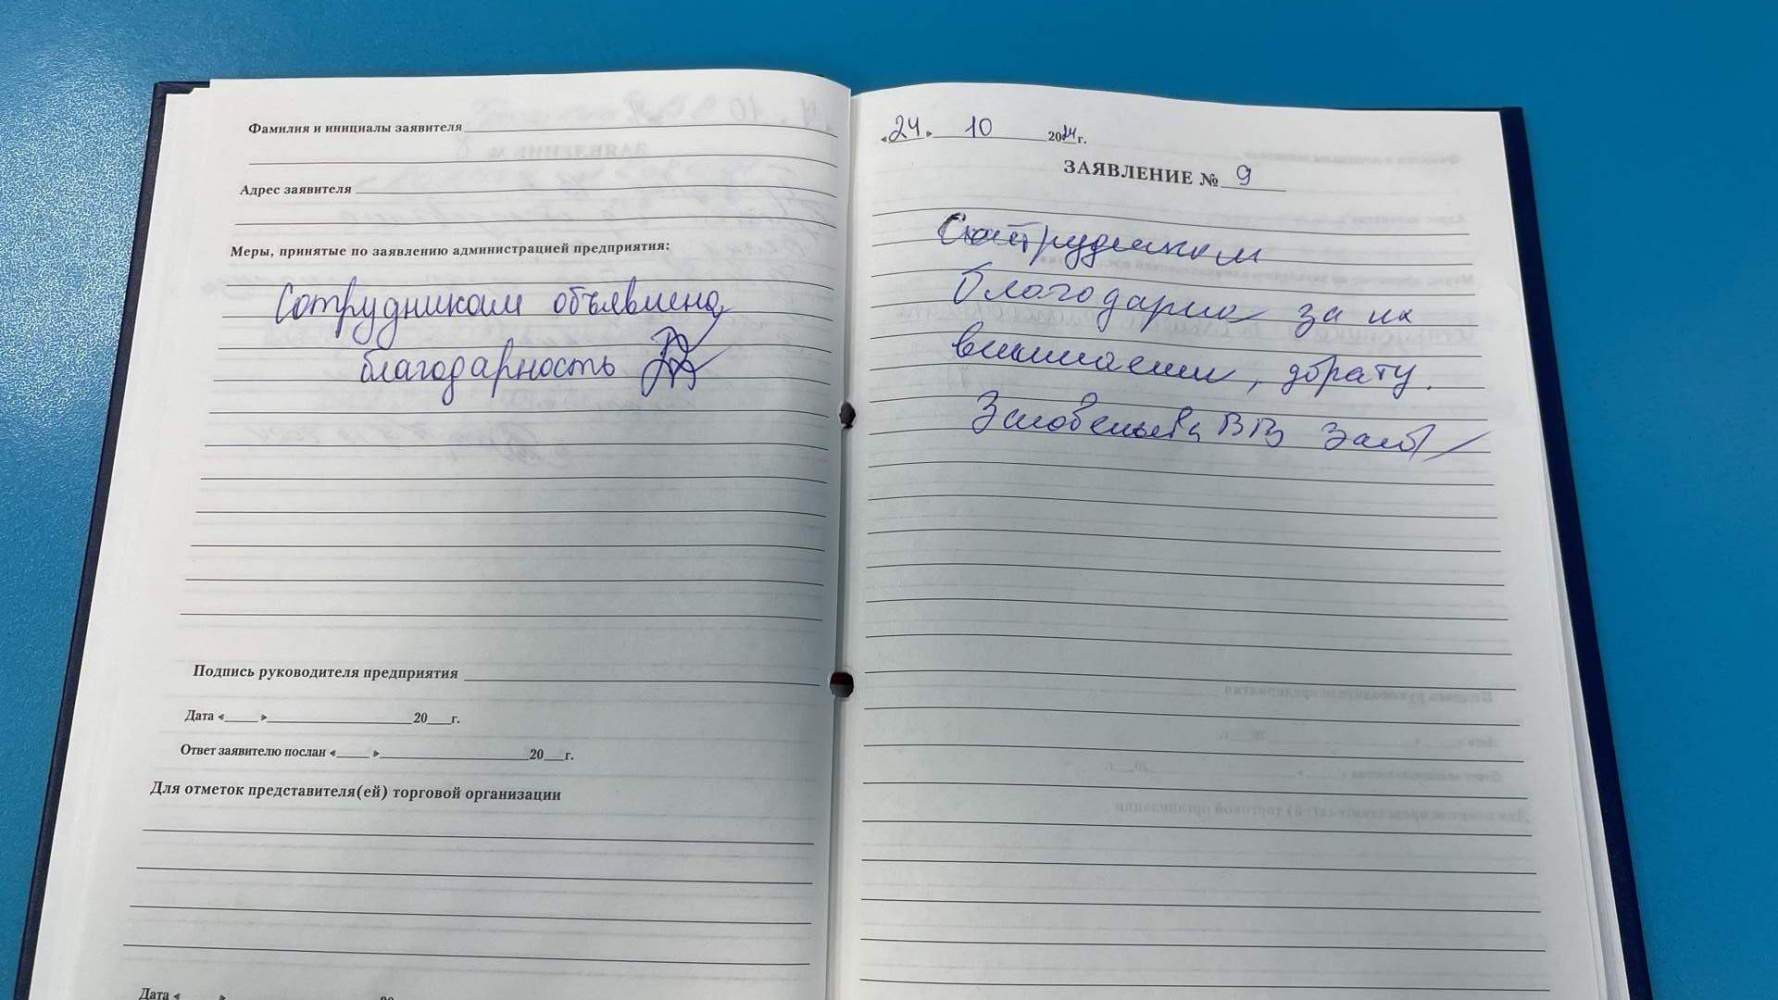 Фамилия и инициалы заявителя
Адрес заявителя
Меры, принятые по заявлению администрацией предприятия:
Сотрудникам объявлена
благодарность
Подпись руководителя предприятия
Дата « » 20 г.
Ответ заявителю послан « » 20 г.
Для отметок представителя(ей) торговой организации
Дата « » 20
«24» 10 2024 г.
ЗАЯВЛЕНИЕ № 9
Сотрудникам
благодарна за их
внимание, доброту.